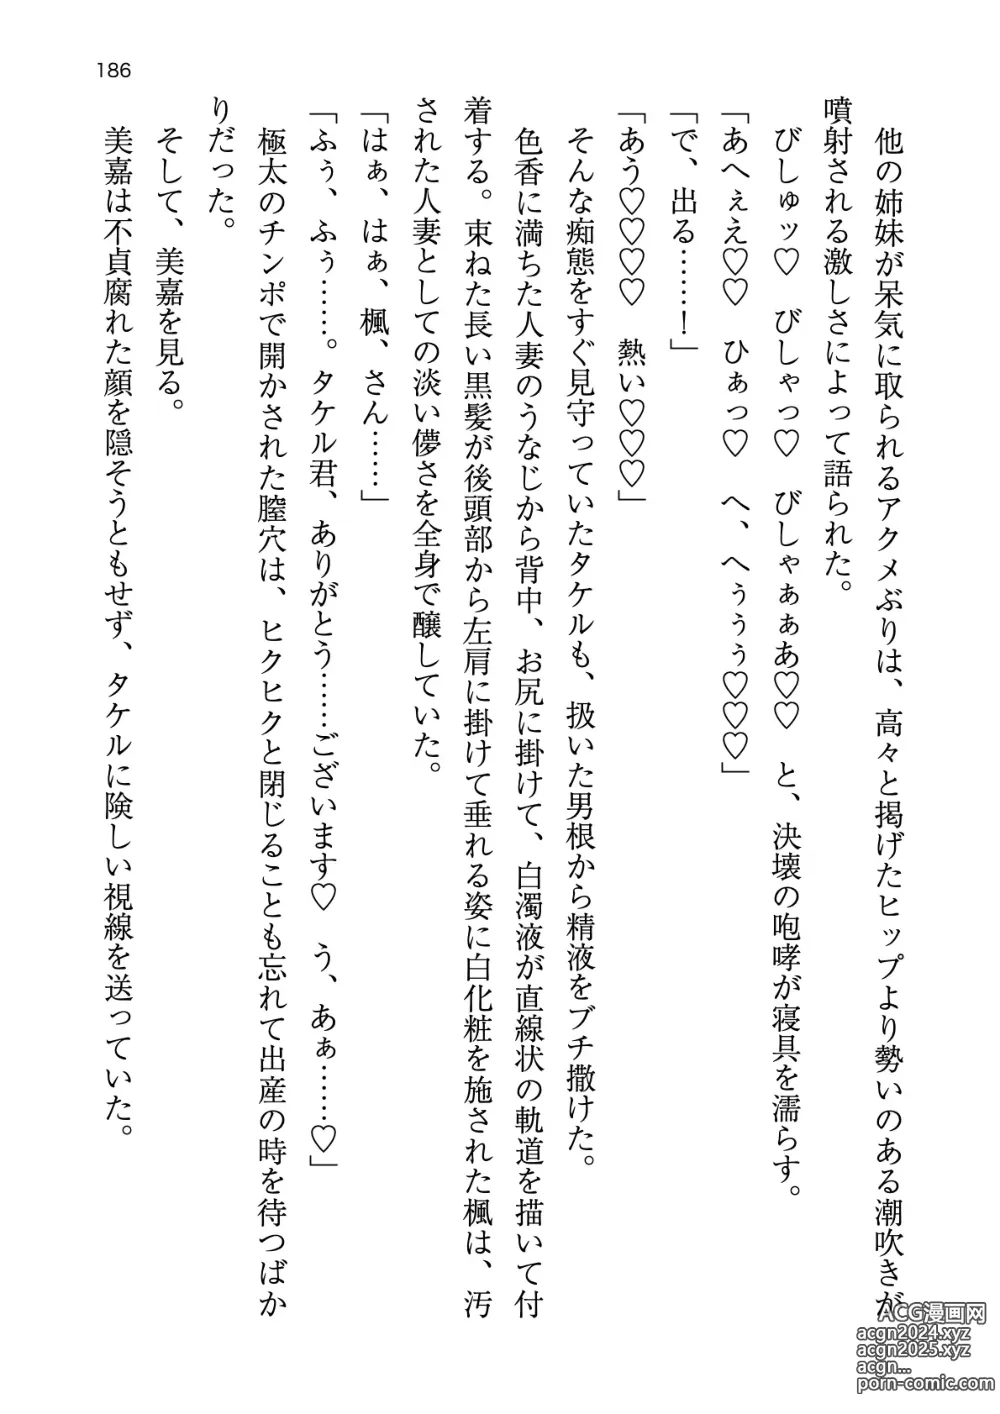 186
他の姉妹が呆気に取られるアクメぶりは、高々と掲げたヒップより勢いのある潮吹きが
噴射される激しさによって語られた。
びしゅッ♡　びしゃっ♡　びしゃぁぁあ♡♡　と、決壊の咆哮が寝具を濡らす。
「あへぇえ♡♡　ひぁっ♡　へ、へぅぅぅ♡♡♡」
「で、出る……！」
「あう♡♡♡♡　熱い♡♡♡」
そんな痴態をすぐ見守っていたタケルも、扱いた男根から精液をブチ撒けた。
色香に満ちた人妻のうなじから背中、お尻に掛けて、白濁液が直線状の軌道を描いて付
着する。束ねた長い黒髪が後頭部から左肩に掛けて垂れる姿に白化粧を施された楓は、汚
された人妻としての淡い儚さを全身で醸していた。
「はぁ、はぁ、楓、さん……」
「ふぅ、ふぅ……。タケル君、ありがとう……ございます♡　う、あぁ……♡」
極太のチンポで開かされた膣穴は、ヒクヒクと閉じることも忘れて出産の時を待つばか
りだった。
そして、美嘉を見る。
美嘉は不貞腐れた顔を隠そうともせず、タケルに険しい視線を送っていた。
ACG漫画网
acgn2024.xyz
acgn2025.xyz
acgn...
porn-comic.com